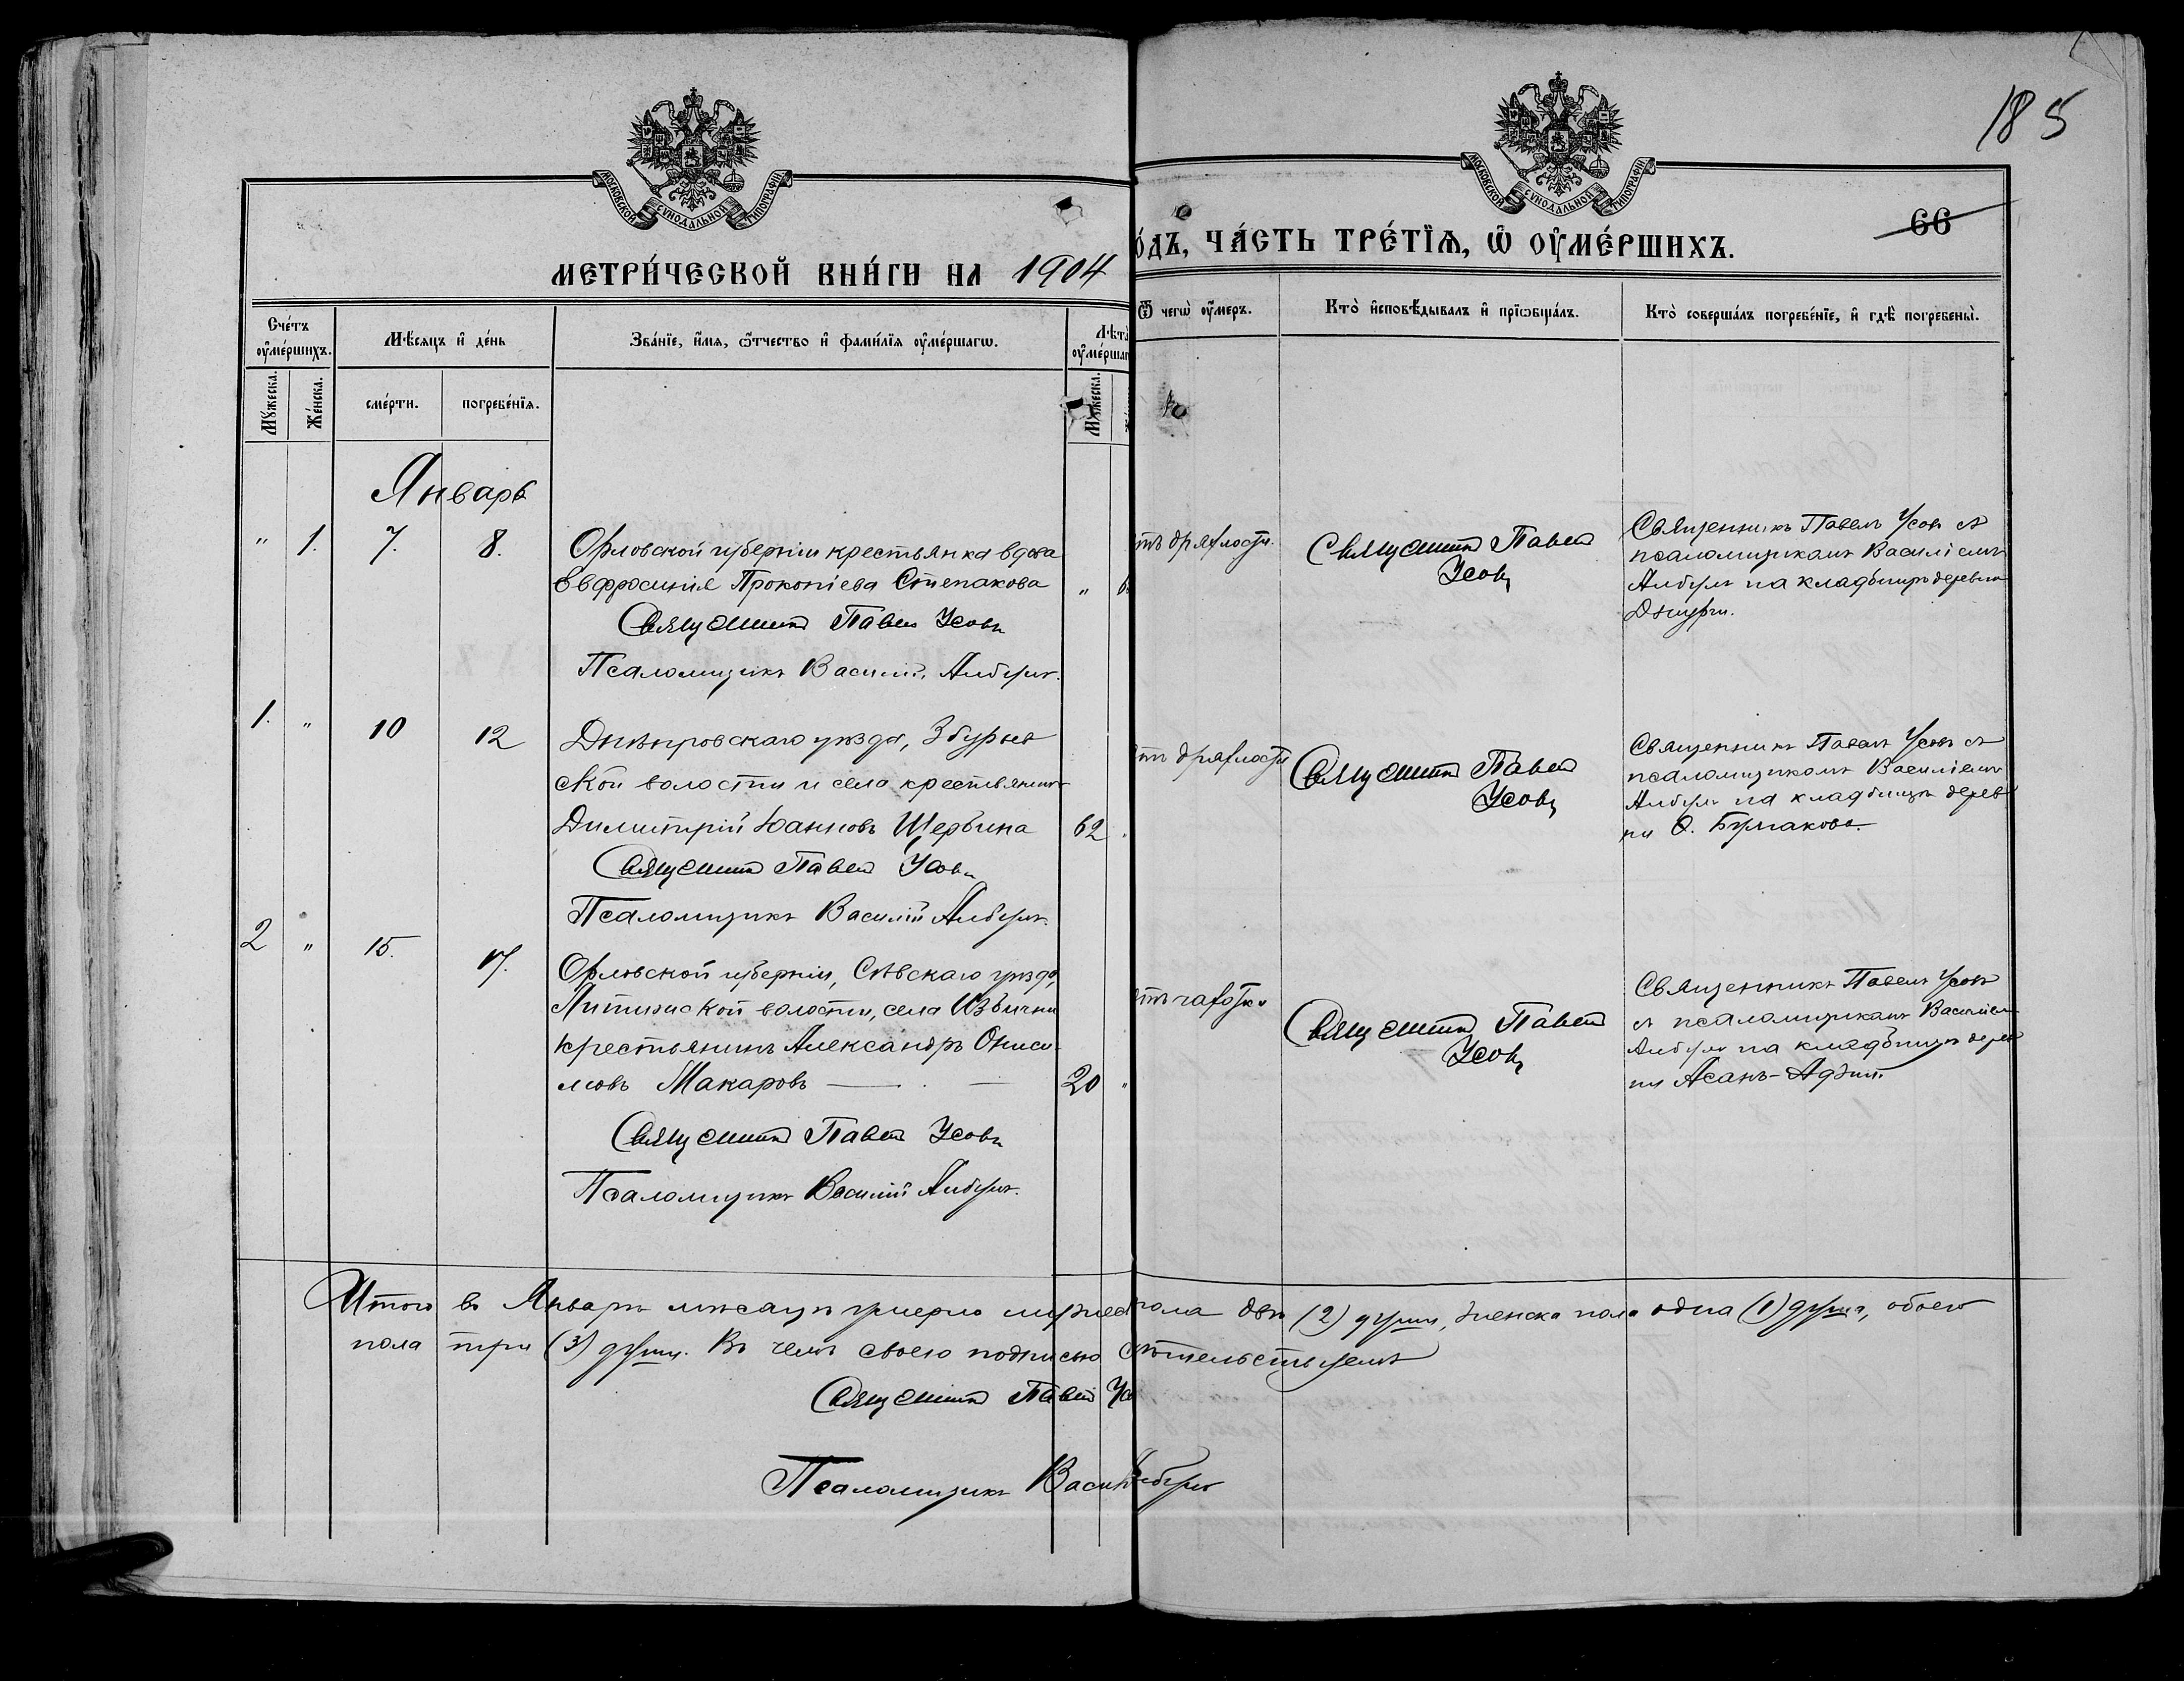 185
66
МОСКОВСКОЙ СѴНОДАЛЬНОЙ ТИПОГРАФІИ
МОСКОВСКОЙ СѴНОДАЛЬНОЙ ТИПОГРАФІИ
МЕТРИ́ЧЕСКОЙ КНИ́ГИ НА 1904
О́ДЪ, ЧА́СТЬ ТРЕ́ТІѦ, Ѡ҆ ОУ҆МЕ́РШИХЪ.
Сче́тъ оу҆ме́ршихъ.
Мѣ́сяцъ и҆ де́нь
Зва́нїе, и҆́мѧ, ѻ҆́тчество и҆ фами́лїѧ оу҆ме́ршагѡ.
Лѣта̀
оу҆ме́ршаг
Ѿ чегѡ̀ оу҆́меръ.
Кто̀ и҆сповѣ́дывалъ и҆ прїѡбща́лъ.
Кто̀ соверша́лъ погребе́нїе, и҆ гдѣ̀ погребены̀.
Мꙋ́жеска.
Же́нска.
сме́рти.
погребе́нїѧ.
Мꙋ́жеска.
Январь
" 1. 7. 8. Орловской губерніи крестьянка вдова
Евфросинія Прокопіева Степакова "
Священникъ Павелъ Усовъ
Псаломщикъ Василій
тъ дряхлости.
Священникъ Павелъ
Усовъ
Священникъ Павелъ Усовъ съ
псаломщикомъ Василіемъ
на кладбищѣ деревни
1. " 10 12 Днѣпровскаго уѣзда, Збурьев
ской волости и села крестьянинъ
Димитрій Іоанновъ Щербина 62
Священникъ Павелъ Усовъ
Псаломщикъ Василій
тъ дряхлости
Священникъ Павелъ
Усовъ
Священникъ Павелъ Усовъ съ
псаломщикомъ Василіемъ
на кладбищѣ дерев
ни
2 " 15. 17. Орловской губерніи, Сѣвскаго уѣзда,
волости, села
крестьянинъ Александръ Ониси
мовъ Макаровъ 20 "
Священникъ Павелъ Усовъ
Псаломщикъ Василій
тъ чахотки
Священникъ Павелъ
Усовъ
Священникъ Павелъ Усовъ
съ псаломщикомъ Василіем
на кладбищѣ дерев
ни Асанъ-
Итого въ Январѣ мѣсяцѣ умерло мужес пола двѣ (2) души, женска пола одна (1) душа, обоего
пола три (3) души. Въ чемъ своею подписью с ѣтельствуемъ
Священникъ Павелъ Усо
Псаломщикъ Васил